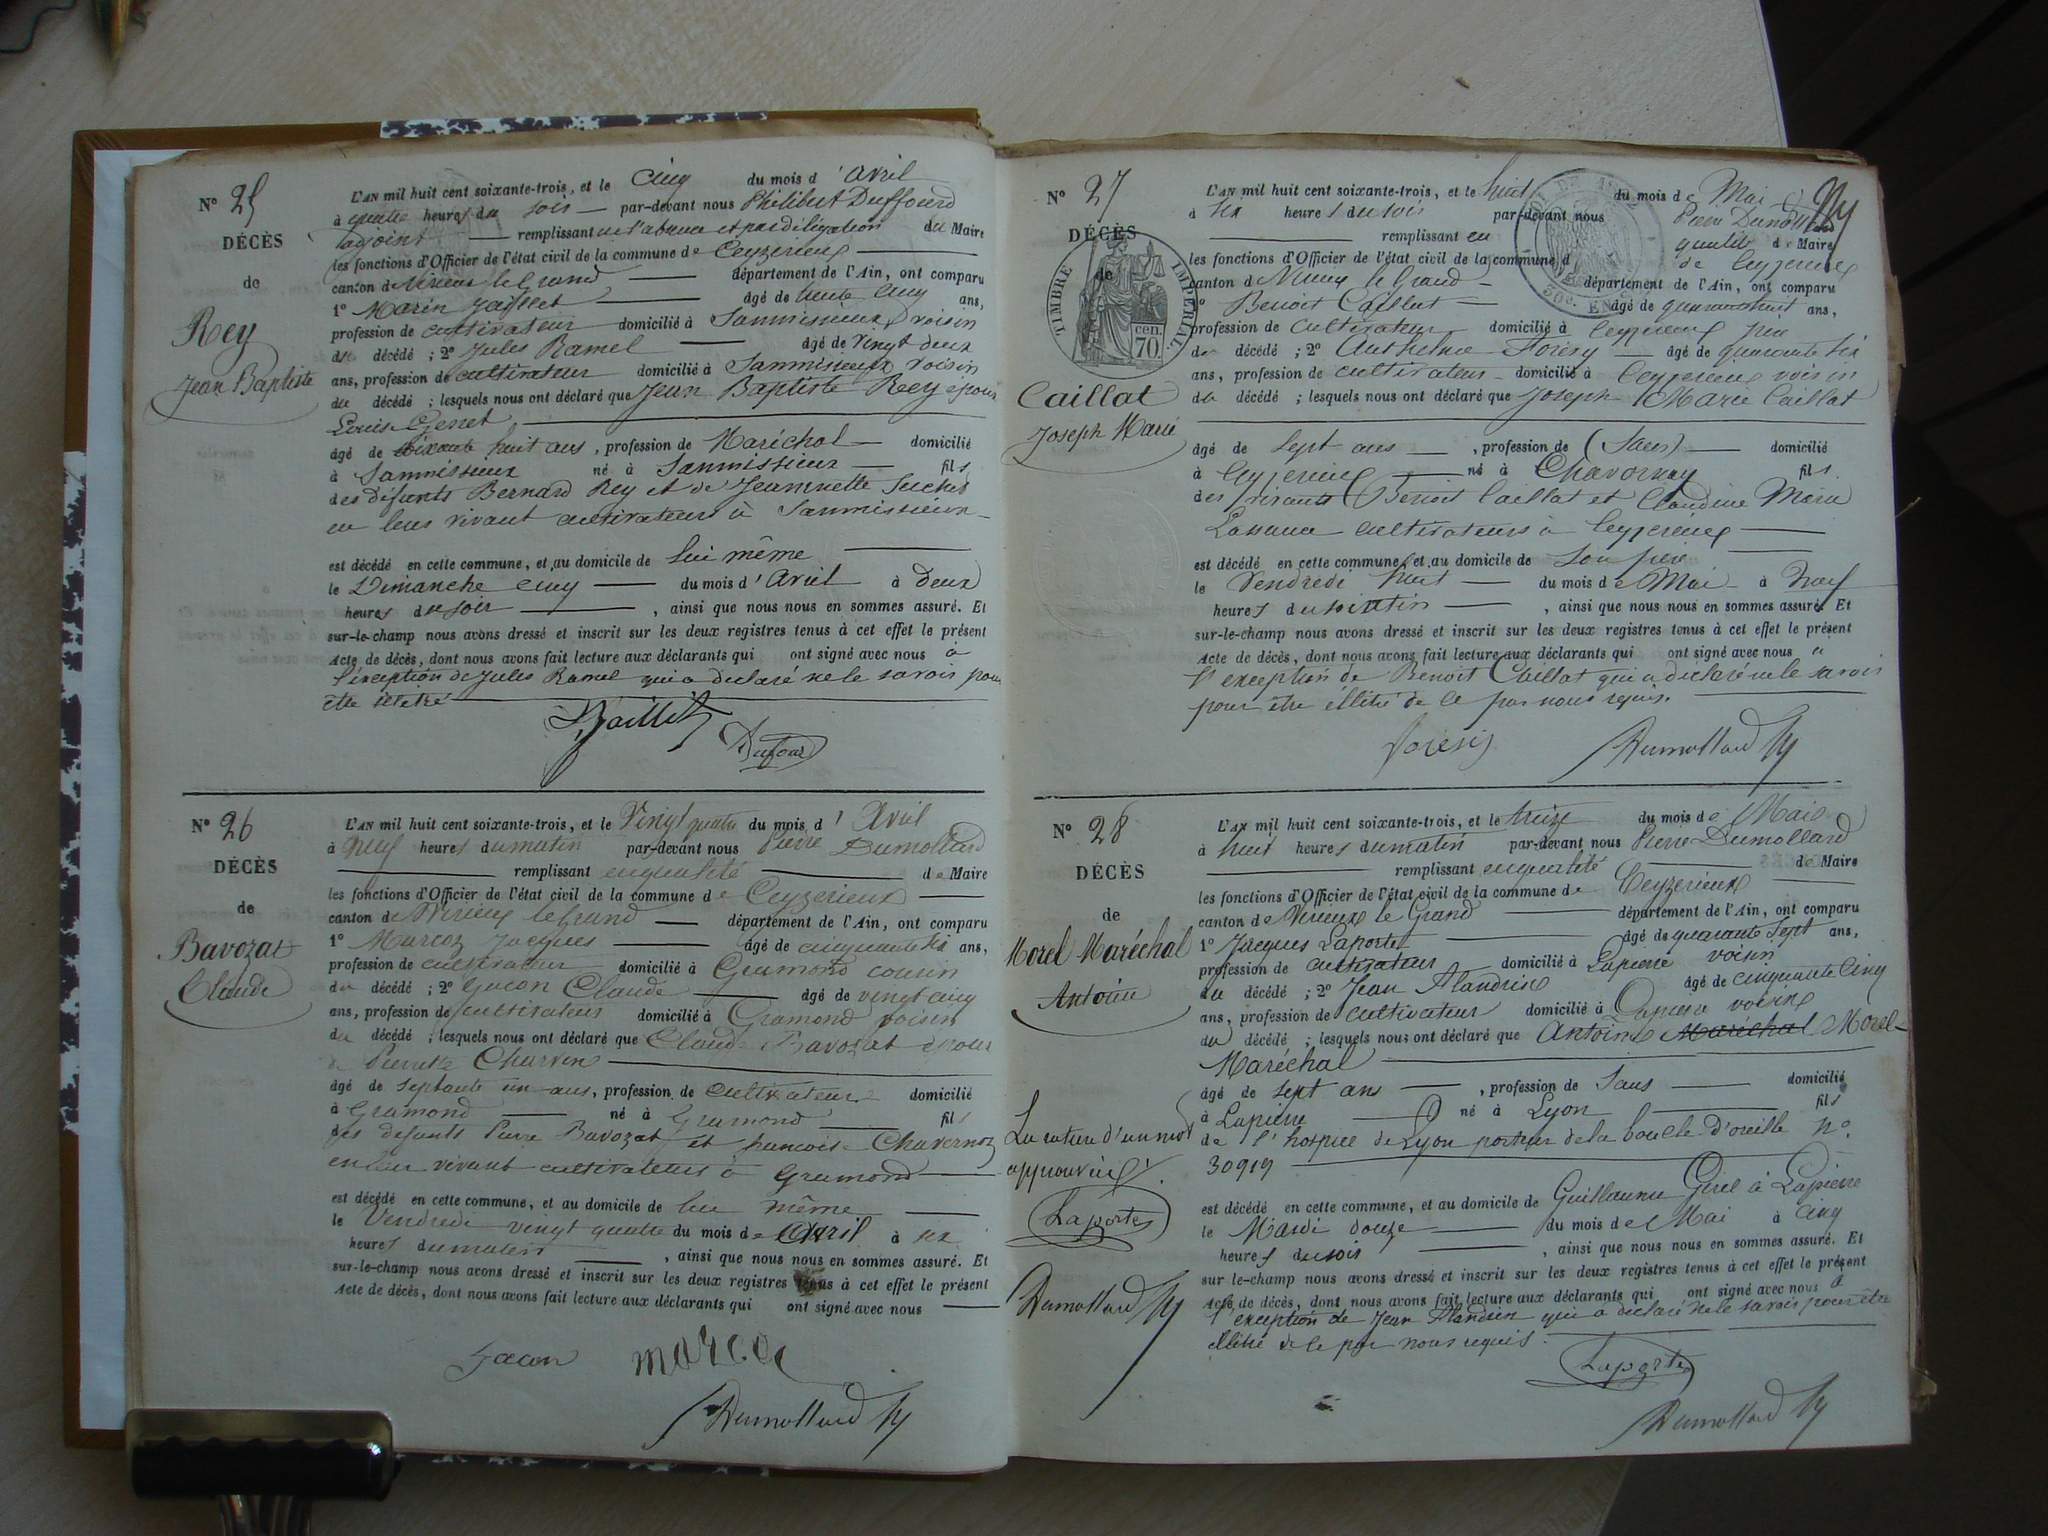 N° 25
DÉCÈS
de
Rey
Jean Baptiste
L'AN mil huit cent soixante-trois, et le Cinq du mois d'Avril
à quatre heures du soir par-devant nous Philibert Duffourd
adjoint remplissant en l'absence et par délégation du Maire
les fonctions d'Officier de l'état civil de la commune de Ceyzerieux
canton de Virieux le Grand département de l'Ain, ont comparu
1° Marin Jaillet agé de trente Cinq ans,
profession de cultivateur domicilié à Sammissieux voisin
du décédé ; 2° Jules Ramel agé de vingt deux
ans, profession de cultivateur domicilié à Sammissieux voisin
du décédé ; lesquels nous ont déclaré que Jean Baptiste Rey époux
Louise Genet
agé de soixante huit ans, profession de Maréchal domicilié
à Sammissieux né à Sammissieux fils
des défunts Bernard Rey et de Jeannette
en leur vivant cultivateurs à Sammissieux
est décédé en cette commune, et au domicile de lui même
le Dimanche cinq du mois d'Avril à deux
heures du soir , ainsi que nous nous en sommes assuré. Et
sur-le-champ nous avons dressé et inscrit sur les deux registres tenus à cet effet le présent
Acte de décès, dont nous avons fait lecture aux déclarants qui ont signé avec nous à
l'éxception de Jules Ramel qui a déclaré ne le savoir pour
être
Jaillet
Dufour
N° 26
DÉCÈS
de
Bavozat
Claude
L'AN mil huit cent soixante-trois, et le Vingt quatre du mois d'Avril
à Neuf heures du matin par-devant nous Pierre Dumollard
remplissant en qualité de Maire
les fonctions d'Officier de l'état civil de la commune de Ceyzerieux
canton de Virieux le Grand département de l'Ain, ont comparu
1° Marcoz Jacques agé de cinquante six ans,
profession de cultivateur domicilié à Gramond cousin
du décédé ; 2° Gacon Claude agé de vingt cinq
ans, profession de cultivateur domicilié à Gramond voisin
du décédé ; lesquels nous ont déclaré que Claude Bavozat époux
de Pierrette Charvin
âgé de septante un ans, profession de cultivateur domicilié
à Gramond né à Gramond fils
des défunts Pierre Bavozat et françoise Chavernoz
en leur vivant cultivateurs à Gramond
est décédé en cette commune, et au domicile de lui même
le Vendredi vingt quatre du mois de Avril à six
heures du matin , ainsi que nous nous en sommes assuré. Et
sur-le-champ nous avons dressé et inscrit sur les deux registres tenus à cet effet le présent
Acte de décès, dont nous avons fait lecture aux déclarants qui ont signé avec nous
Gacon marcoz
Dumollard
N° 27
DÉCÈS
de
TIMBRE IMPERIAL
cen.
70
Caillat
Joseph Marie
L'AN mil huit cent soixante-trois, et le huit du mois de Mai
à six heures du soir par-devant nous Pierre Dumollard
remplissant en qualité de Maire
les fonctions d'Officier de l'état civil de la commune d de Ceyzerieux
canton de Virieux le Grand département de l'Ain, ont comparu
1° Benoit Caillat agé de quarante huit ans,
profession de cultivateur domicilié à Ceyzerieux père
du décédé ; 2° Anthelme Forésy agé de quarante six
ans, profession de cultivateur domicilié à Ceyzerieux voisin
du décédé ; lesquels nous ont déclaré que Joseph Marie Caillat
agé de Sept ans , profession de (Sans) domicilié
à Ceyzerieux né à Chavornay fils
des vivants Benoit Caillat et Claudine Marie
cultivateurs à Ceyzerieux
est décédé en cette commune, et au domicile de Son père
le Vendredi huit du mois de Mai à Neuf
heures du matin , ainsi que nous nous en sommes assuré. Et
sur-le-champ nous avons dressé et inscrit sur les deux registres tenus à cet effet le présent
Acte de décès, dont nous avons fait lecture aux déclarants qui ont signé avec nous à
l'exception de Benoit Caillat qui a déclaré ne le savoir
pour être illétré de ce par nous requis.
forésy Dumollard
N° 28
DÉCÈS
de
Morel Maréchal
Antoine
La rature d'un mot
approuvée
Laporte
Dumollard
L'AN mil huit cent soixante-trois, et le treize du mois de Mai
à huit heures du matin par-devant nous Pierre Dumollard
remplissant en qualité de Maire
les fonctions d'Officier de l'état civil de la commune de Ceyzerieux
canton de Virieux le Grand département de l'Ain, ont comparu
1° Jacques Laporte agé de quarante Sept ans,
profession de cultivateur domicilié à Lapierre voisin
du décédé ; 2° Jean Alandrin agé de cinquante Cinq
ans, profession de cultivateur domicilié à Lapierre voisin
du décédé ; lesquels nous ont déclaré que Antoine Maréchal Morel-
Maréchal
âgé de sept ans , profession de Sans domicilié
à Lapierre né à Lyon fils
de l'hospice de Lyon porteur de la boucle d'oreille N°.
30919
est décédé en cette commune, et au domicile de Guillaume Girel à Lapierre
le Mardi douze du mois de Mai à Cinq
heures du soir , ainsi que nous nous en sommes assuré. Et
sur le-champ nous avons dressé et inscrit sur les deux registres tenus à cet effet le présent
Acte de décès, dont nous avons fait lecture aux déclarants qui ont signé avec nous à
l'exception de Jean Alandrin qui a déclaré ne le savoir pour être
illétré de ce par nous requis.
Laporte
Dumollard